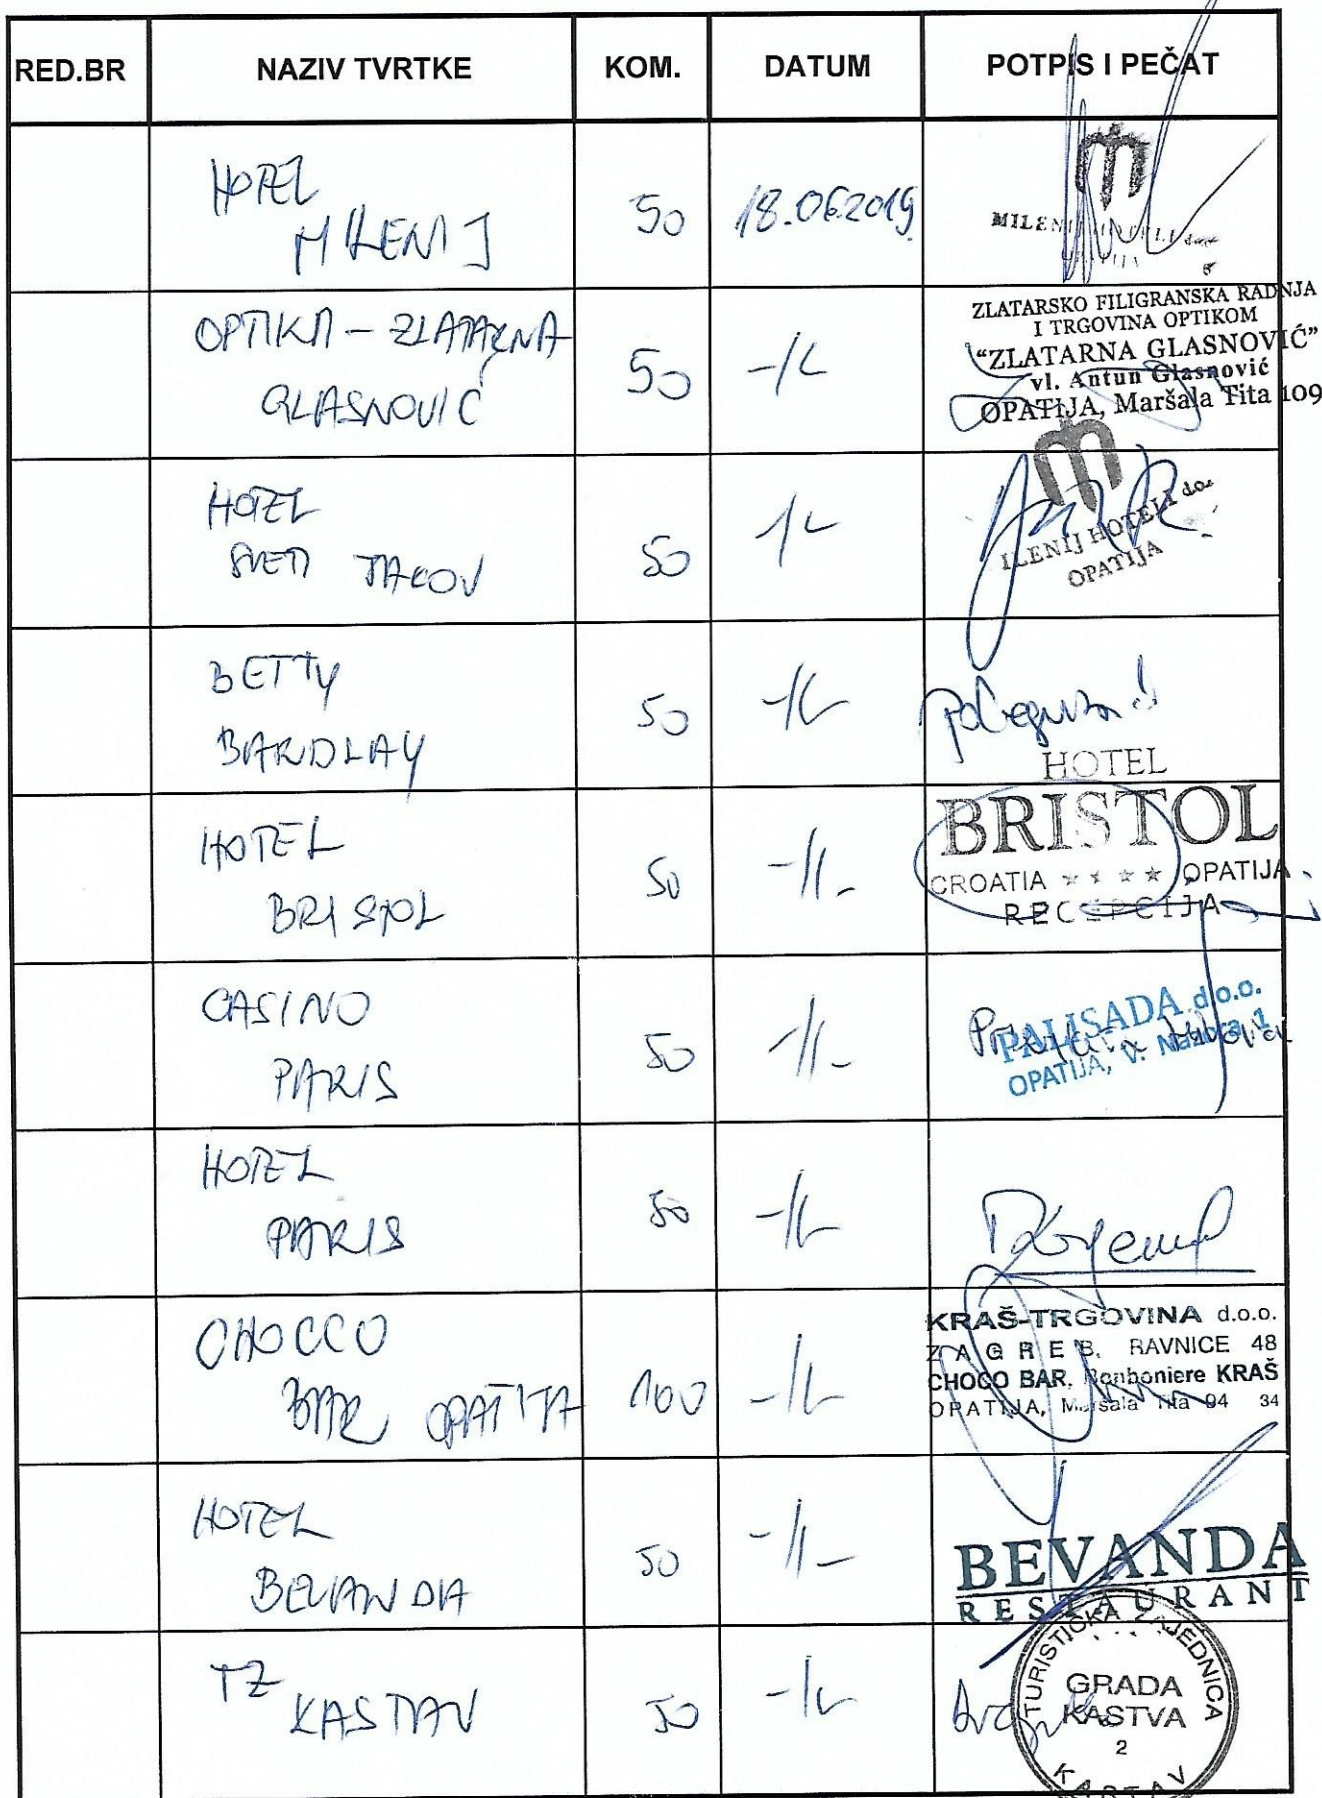 RED.BR NAZIV TVRTKE KOM. DATUM POTPIS I PEČAT
HOTEL
MILENIJ 50 18.06.2019.
OPATIJA
OPTIKA - ZLATARNA
GLASNOVIĆ 50 -//-
ZLATARSKO FILIGRANSKA RADNJA
I TRGOVINA OPTIKOM
"ZLATARNA GLASNOVIĆ"
vl. Antun Glasnović
OPATIJA, Maršala Tita 109
HOTEL
SVETI JAKOV 50 -//-
ILENIJ HOTELI d.o.
OPATIJA
BETTY
BARDLAY 50 -//-
HOTEL
BRISTOL 50 -//-
HOTEL
BRISTOL
CROATIA **** OPATIJA
RECEPCIJA
CASINO
PARIS 50 -//-
PALISADA d.o.o.
OPATIJA, V. Nazora 1
HOTEL
PARIS 50 -//-
CHOCCO
BAR OPATIJA 100 -//-
KRAŠ-TRGOVINA d.o.o.
ZAGREB, RAVNICE 48
CHOCO BAR, Bonboniere KRAŠ
OPATIJA, Maršala Tita 94 34
HOTEL
BEVANDA 50 -//-
BEVANDA
RESTAURANT
TZ
KASTAV 50 -//-
TURISTIČKA ZAJEDNICA
GRADA
KASTVA
2
KASTAV